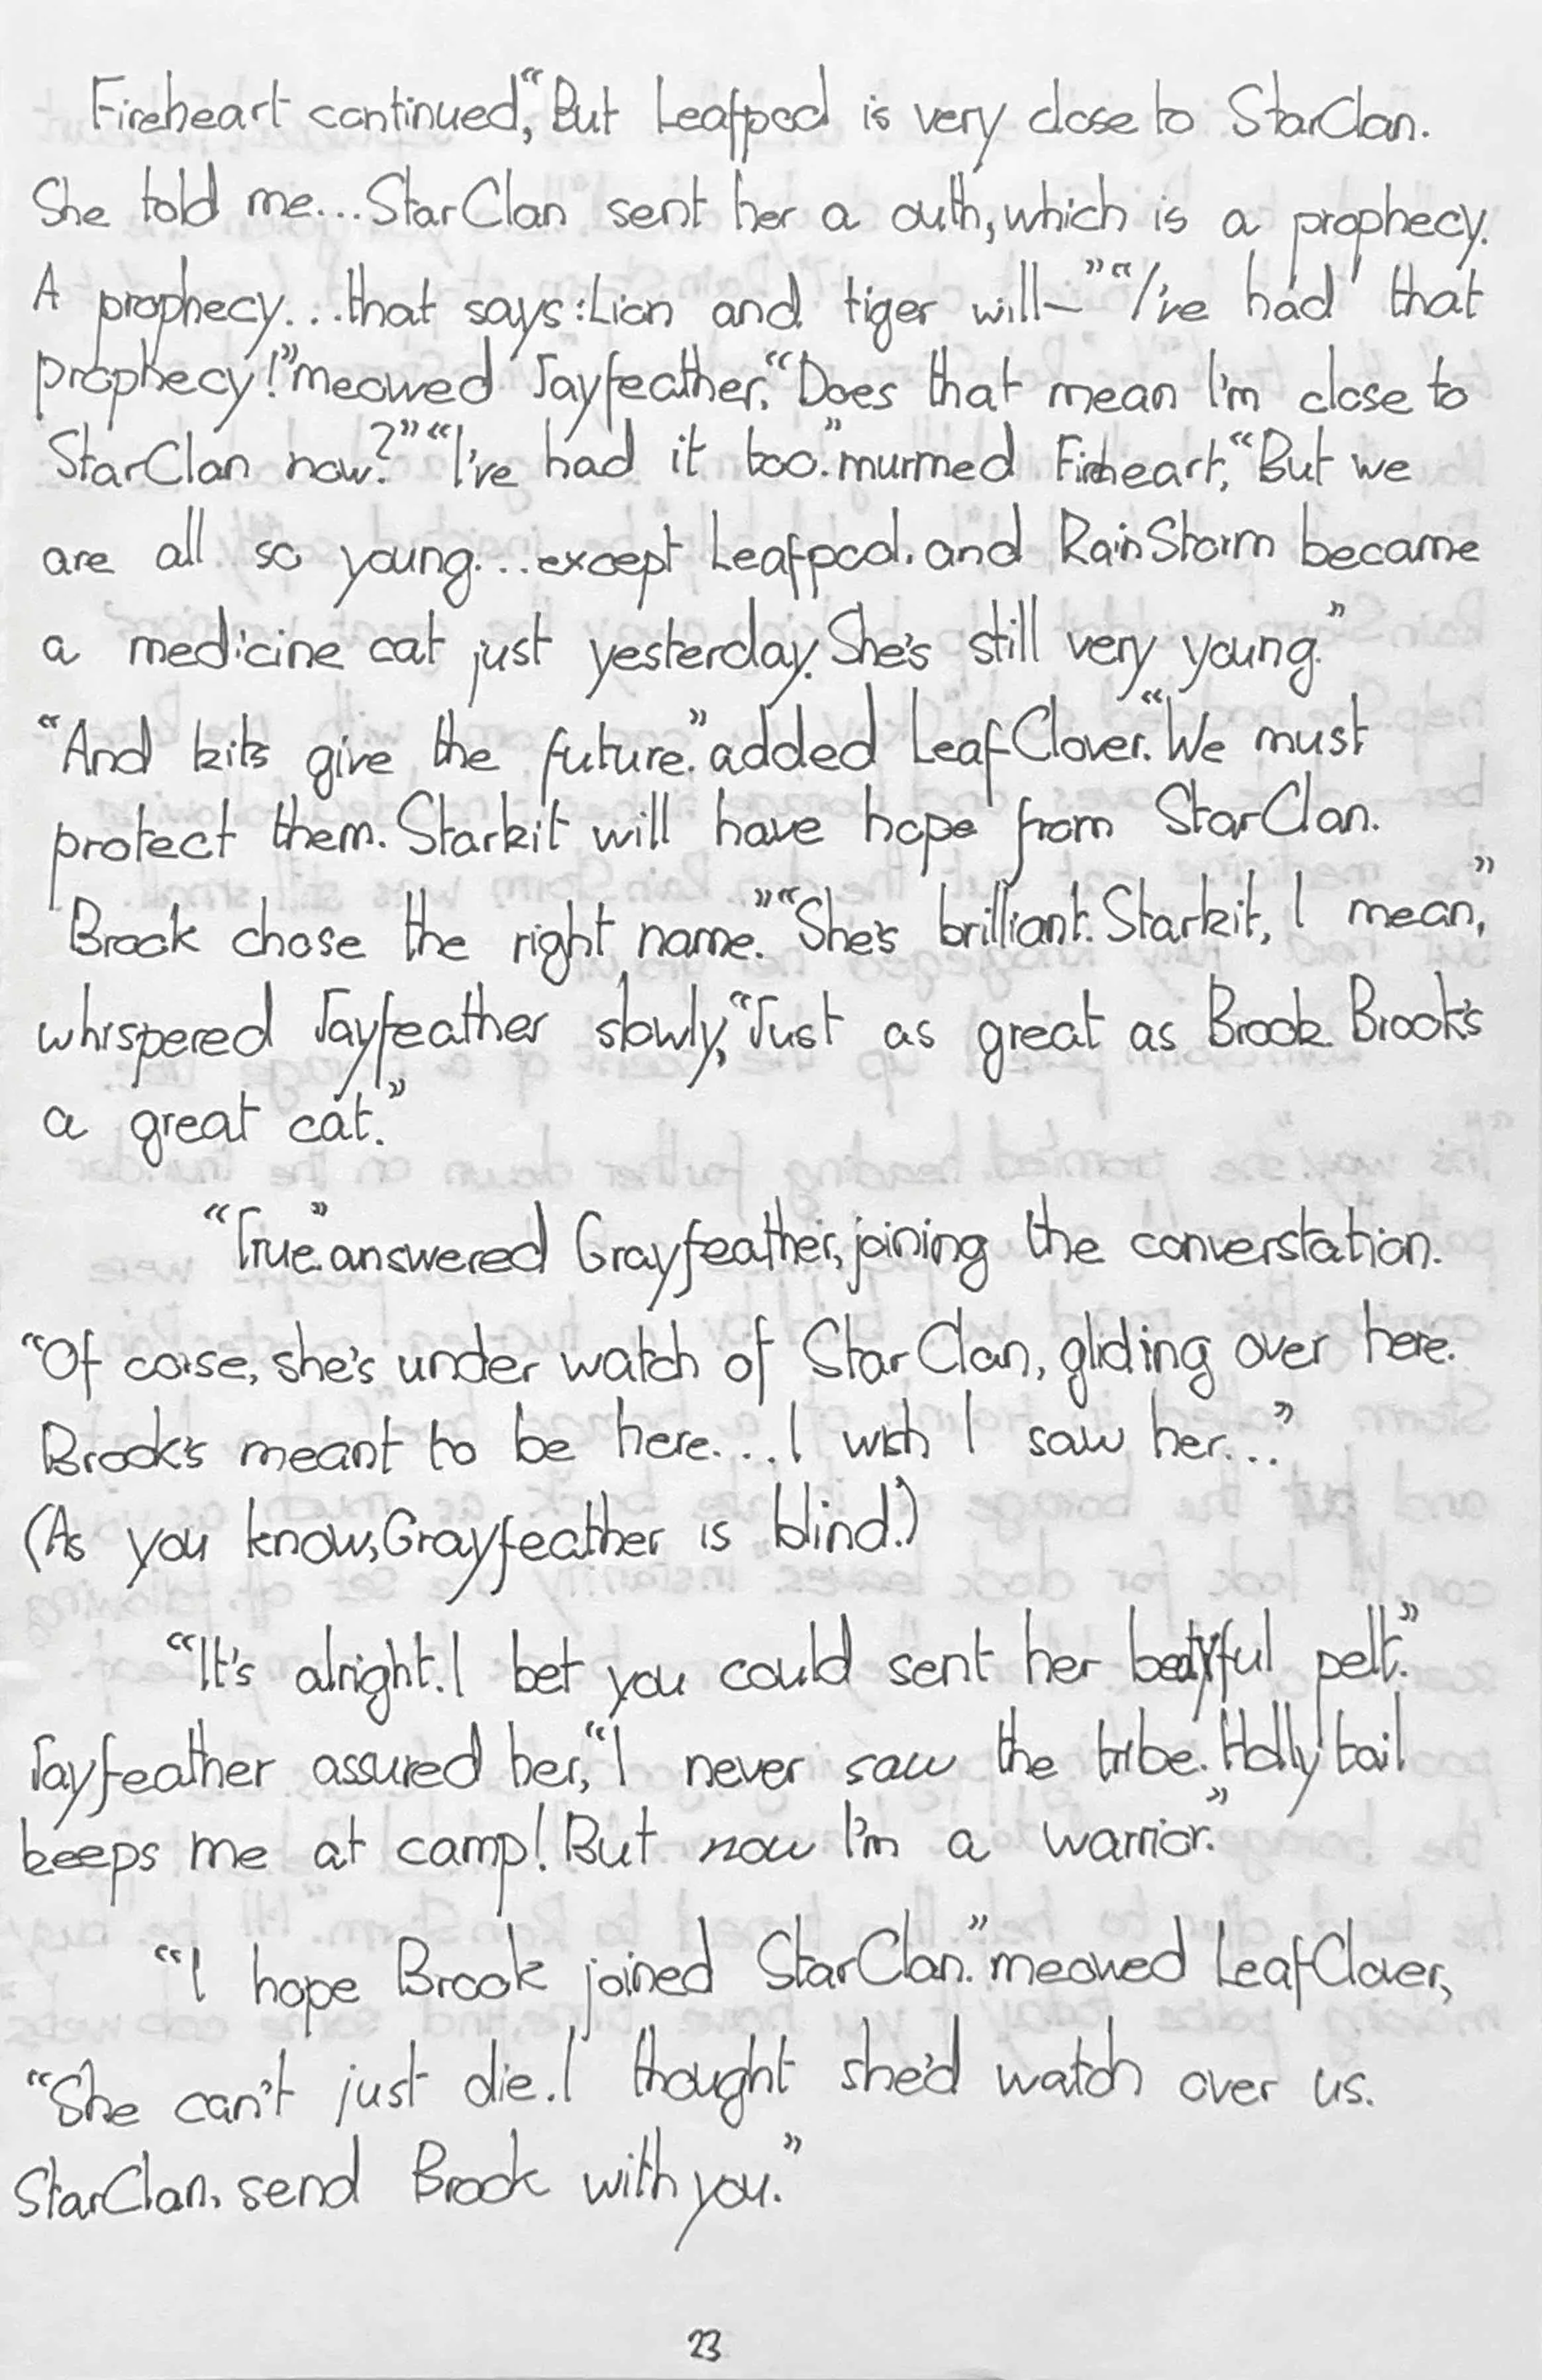 Fireheart continued, “But Leafpool is very close to StarClan.
She told me...StarClan sent her a outh, which is a prophecy.
A prophecy...that says: Lion and tiger will—” “I've had that
prophecy!” meowed Jayfeather, “Does that mean I'm close to
StarClan now?” “I've had it too.” murmed Fireheart, “But we
are all so young...except Leafpool. and RainStorm became
a medicine cat just yesterday. She's still very young.”
“And kits give the future.” added LeafClover. “We must
protect them. Starkit will have hope from StarClan.
Brook chose the right name.” “She's brilliant. Starkit, I mean,”
whispered Jayfeather slowly, “Just as great as Brook. Brook's
a great cat.”
“True.” answered Grayfeather, joining the converstation.
“Of corse, she's under watch of StarClan, gliding over here.
Brook's meant to be here....I wish I saw her...”
(As you know, Grayfeather is blind.)
“It's alright. I bet you could sent her beatyful pelt.”
Jayfeather assured her, “I never saw the tribe. Hollytail
keeps me at camp! But now I'm a warrior.”
“I hope Brook joined StarClan.” meowed LeafClover,
“She can't just die. I thought she'd watch over us.
StarClan, send Brook with you.”
23